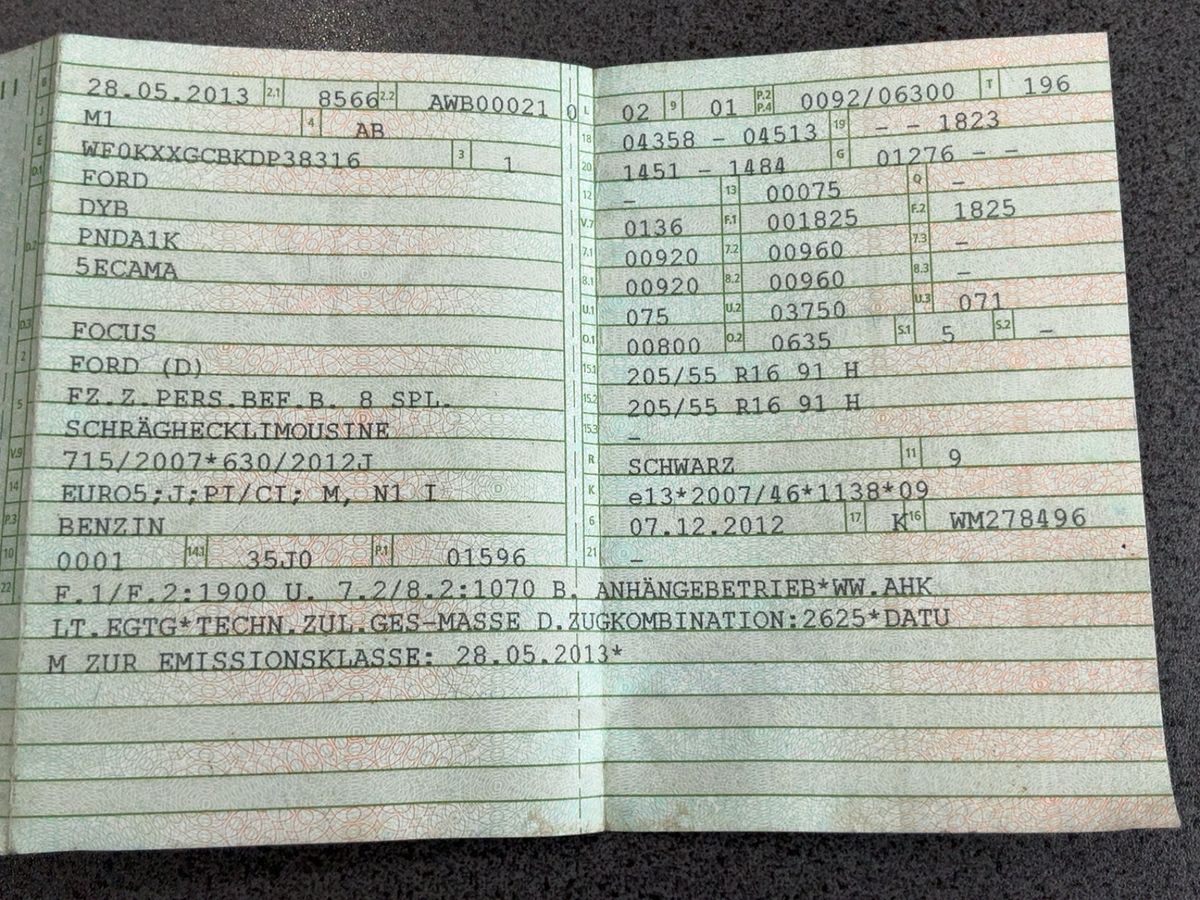 B 28.05.2013 2.1 8566 2.2 AWB00021 0
J M1 4 AB
E WF0KXXGCBKDP38316 3 1
D.1 FORD
DYB
D.2 PNDA1K
5ECAMA
D.3 FOCUS
2 FORD (D)
5 FZ.Z.PERS.BEF.B. 8 SPL.
SCHRÄGHECKLIMOUSINE
V.9 715/2007*630/2012J
14 EURO5;J;PI/CI; M, N1 I
P.3 BENZIN
10 0001 14.1 35J0 P.1 01596
L 02 9 01 P.2 P.4 0092/06300 T 196
18 04358 - 04513 19 - - 1823
20 1451 - 1484 G 01276 - -
12 - 13 00075 Q -
V.7 0136 F.1 001825 F.2 1825
7.1 00920 7.2 00960 7.3 -
8.1 00920 8.2 00960 8.3 -
U.1 075 U.2 03750 U.3 071
O.1 00800 O.2 0635 S.1 5 S.2 -
15.1 205/55 R16 91 H
15.2 205/55 R16 91 H
15.3 -
R SCHWARZ 11 9
K e13*2007/46*1138*09
6 07.12.2012 17 K 16 WM278496
21 -
22 F.1/F.2:1900 U. 7.2/8.2:1070 B. ANHÄNGEBETRIEB*WW.AHK
LT.EGTG*TECHN.ZUL.GES-MASSE D.ZUGKOMBINATION:2625*DATU
M ZUR EMISSIONSKLASSE: 28.05.2013*